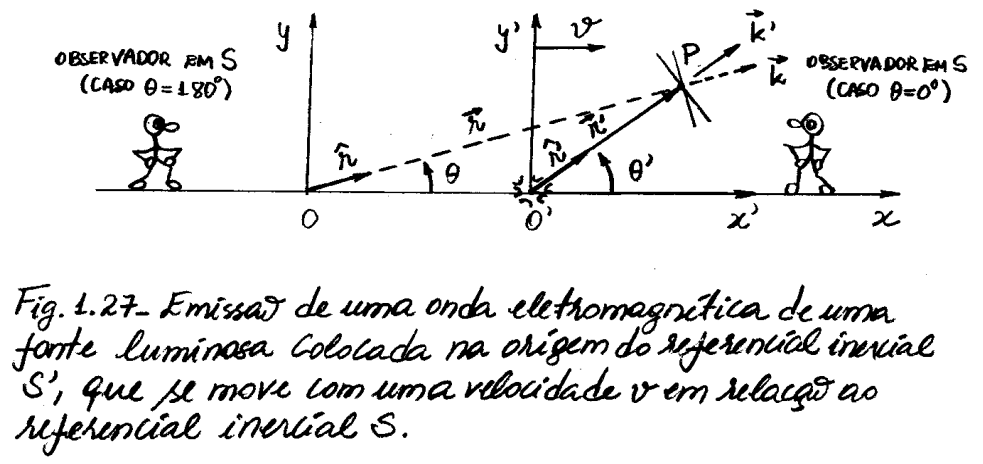 y
y'
v
P
k⃗'
k⃗
OBSERVADOR EM S
(CASO θ=180°)
OBSERVADOR EM S
(CASO θ=0°)
r⃗
r⃗'
r̂
θ
r̂'
θ'
O
O'
x'
x
Fig. 1.27- Emissão de uma onda eletromagnética de uma
fonte luminosa colocada na origem do referencial inercial
S', que se move com uma velocidade v em relação ao
referencial inercial S.